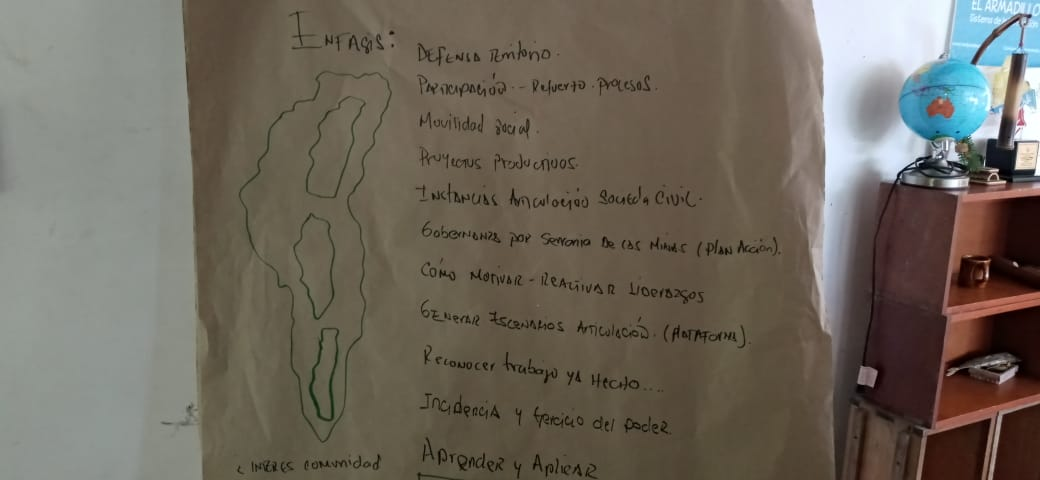 ENFASIS:
DEFENSA TERRITORIO.
PARTICIPACIÓN -- REFUERZO. PROCESOS.
MOVILIDAD SOCIAL.
PROYECTOS PRODUCTIVOS.
INSTANCIAS ARTICULACIÓN SOCIEDA CIVIL.
GOBERNANZA POR SERRANIA DE LAS MINAS (PLAN ACCIÓN).
CÓMO MOTIVAR - REACTIVAR LIDERAZGOS
GENERAR ESCENARIOS ARTICULACIÓN. (PLATAFORMA).
RECONOCER TRABAJO YA HECHO....
INCIDENCIA Y EJERCICIO DEL PODER.
APRENDER Y APLICAR
INTERES COMUNIDAD
EL ARMADILLO